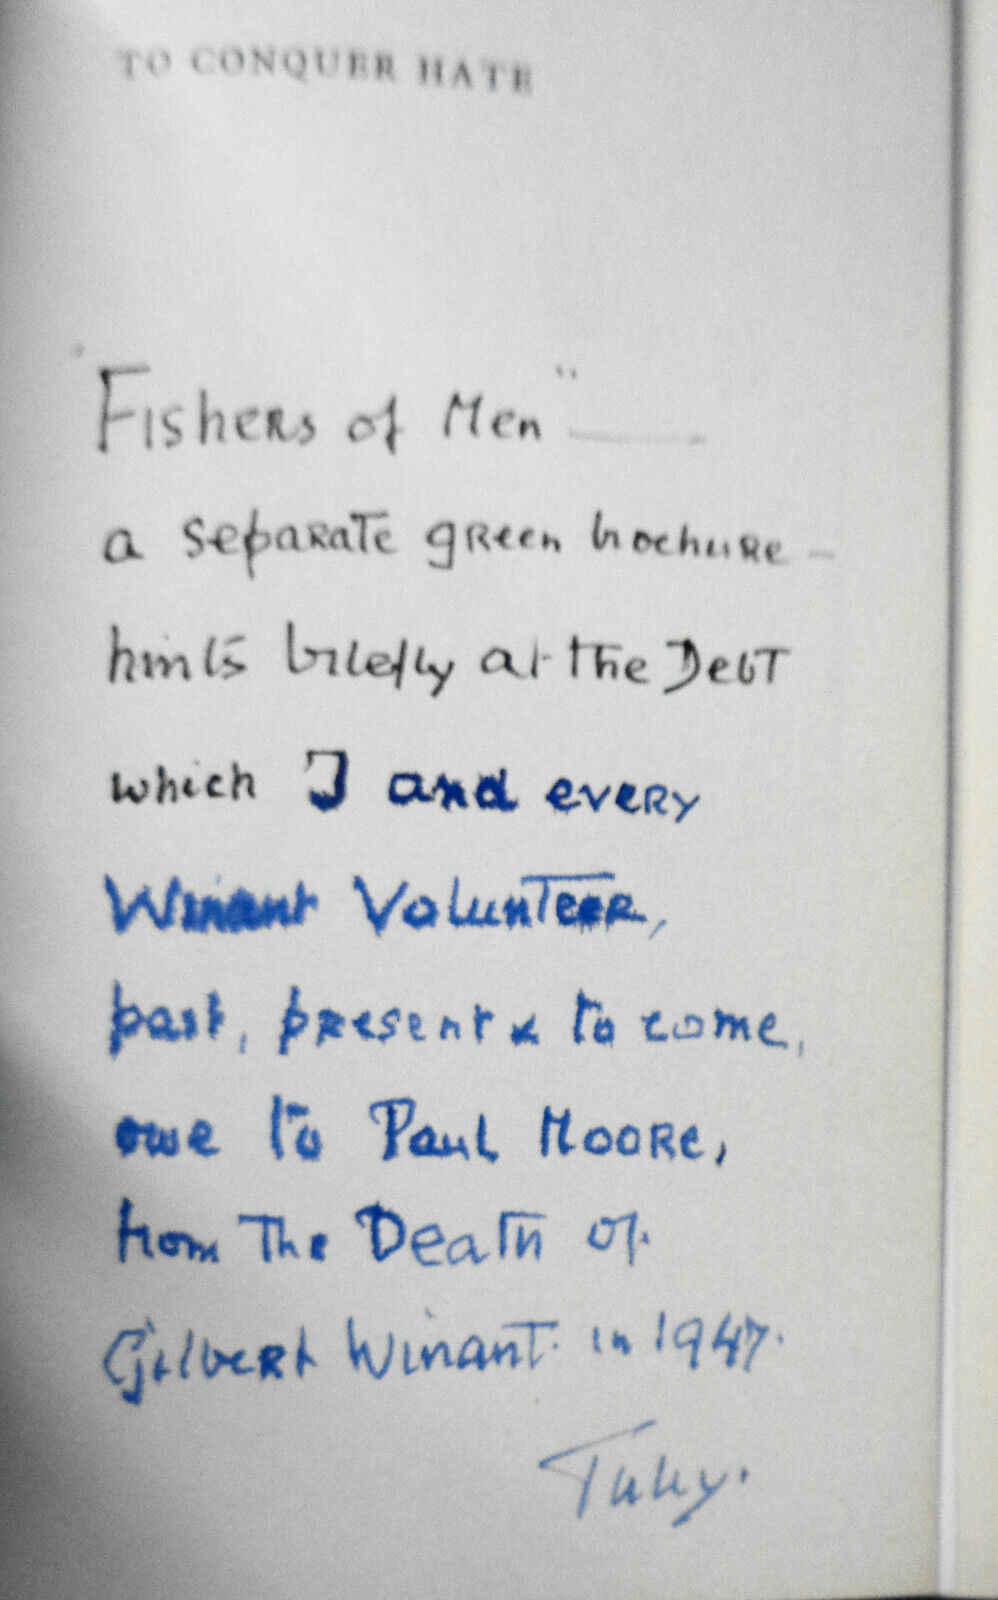 TO CONQUER HATE
"Fishers of Men" —
a separate green brochure –
hints briefly at the Debt
which I and every
Winant Volunteer,
past, present & to come,
owe to Paul Moore,
from the Death of
Gilbert Winant in 1947.
Tuby.